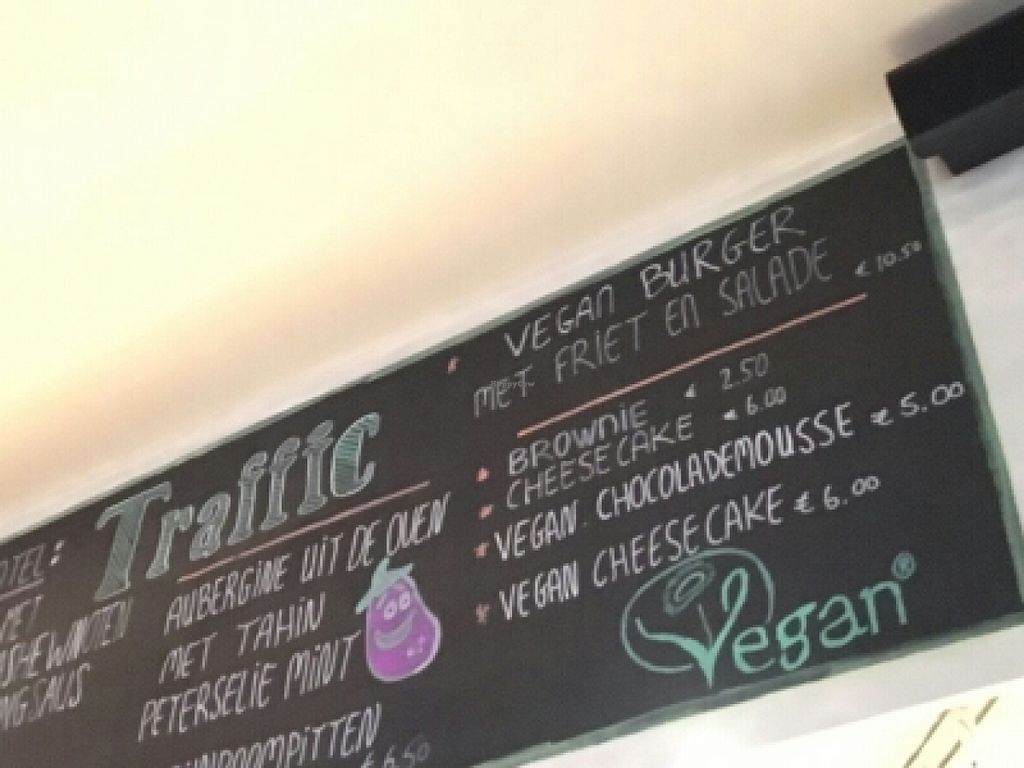 Traffic
AUBERGINE UIT DE OVEN
MET TAHIN
PETERSELIE MINT
€6.50
VEGAN BURGER
MET FRIET EN SALADE € 10.50
BROWNIE € 2.50
CHEESECAKE € 6.00
VEGAN CHOCOLADEMOUSSE € 5.00
VEGAN CHEESECAKE € 6.00
Vegan®